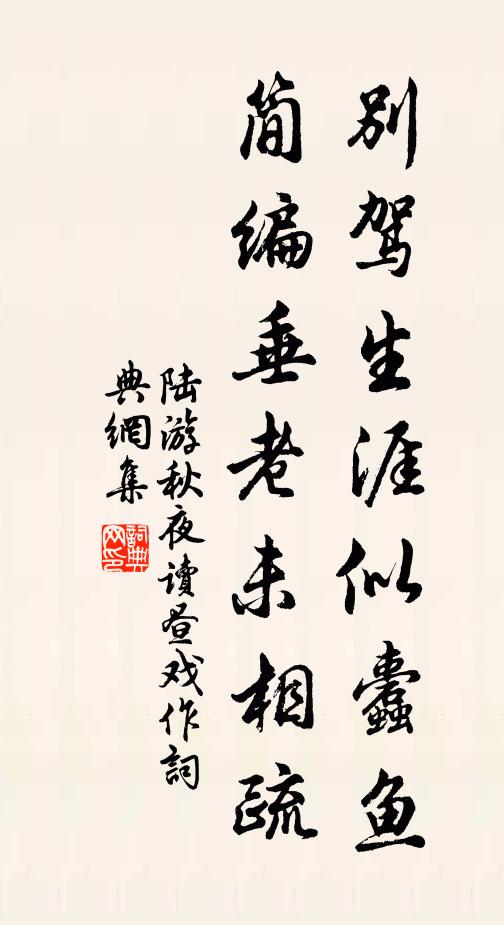 别驾生涯似蠹鱼
简编垂老未相疏
陆游秋夜讀書戏作詞
典網集
詞典
网印